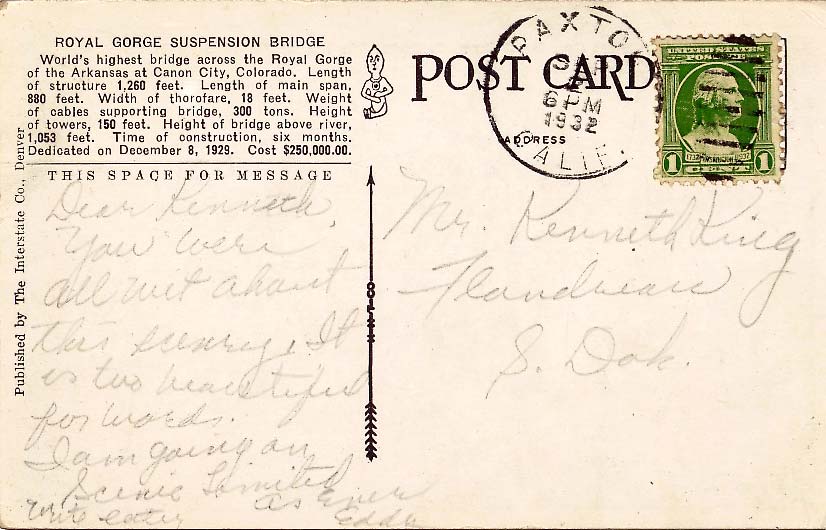 ROYAL GORGE SUSPENSION BRIDGE
World's highest bridge across the Royal Gorge
of the Arkansas at Canon City, Colorado. Length
of structure 1,260 feet. Length of main span,
880 feet. Width of thorofare, 18 feet. Weight
of cables supporting bridge, 300 tons. Height
of towers, 150 feet. Height of bridge above river,
1,053 feet. Time of construction, six months.
Dedicated on December 8, 1929. Cost $250,000.00.
THIS SPACE FOR MESSAGE
Dear Kenneth,
You were
all wet about
this scenery. It
is too beautiful
for words.
I am going on
Scenic Limited
As Ever
Eddy
Write later
Published by The Interstate Co., Denver
POST CARD
ADDRESS
PAXTO
6 PM
1932
CALIF.
UNITED STATES
POSTAGE
1 1
Mr. Kenneth King
Flandreau
S. Dak.